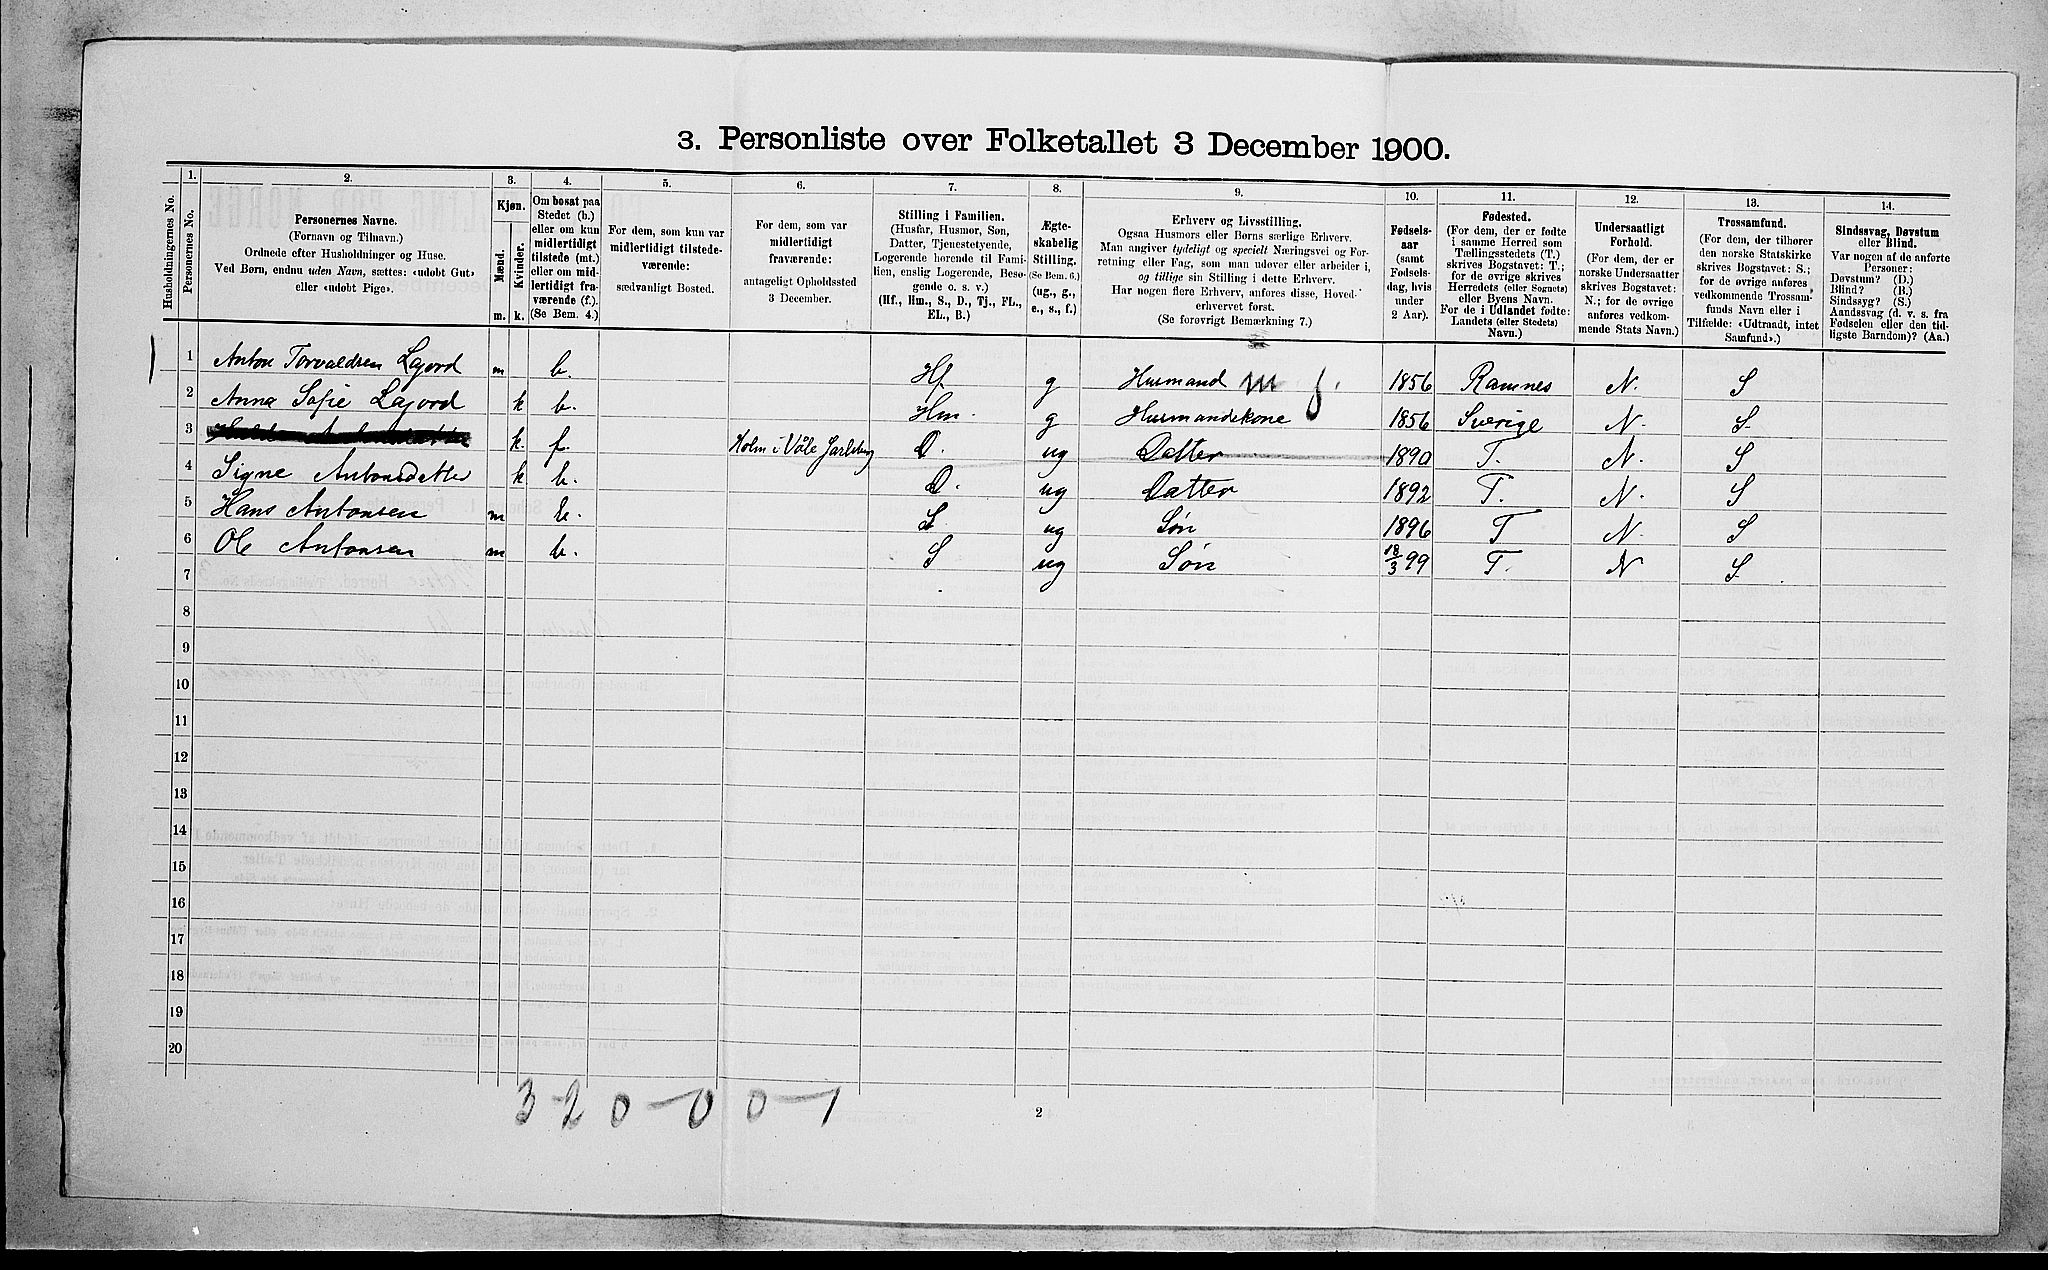 3. Personliste over Folketallet 3 December 1900.
Husholdningernes No.
1.
Personernes No.
2.
Personernes Navne.
(Fornavn og Tilnavn.)
Ordnede efter Husholdninger og Huse.
Ved Børn, endnu uden Navn, sættes: «udøbt Gut»
eller «udøbt Pige».
3.
Kjøn.
Mænd.
Kvinder.
m.
k.
4.
Om bosat paa
Stedet (b.)
eller om kun
midlertidigt
tilstede (mt.)
eller om mid-
lertidigt fra-
værende (f.).
(Se Bem. 4.)
5.
For dem, som kun var
midlertidigt tilstede-
værende:
sædvanligt Bosted.
6.
For dem, som var
midlertidigt
fraværende:
antageligt Opholdssted
3 December.
7.
Stilling i Familien.
(Husfar, Husmor, Søn,
Datter, Tjenestetyende,
Logerende hørende til Fami-
lien, enslig Logerende, Besø-
gende o. s. v.)
(Hf., Hm., S., D., Tj., FL.,
EL., B.)
8.
Ægte-
skabelig
Stilling.
(Se Bem. 6.)
(ug., g.,
e., s., f.)
9.
Erhverv og Livsstilling.
Ogsaa Husmors eller Børns særlige Erhverv.
Man angiver tydeligt og specielt Næringsvei og For-
retning eller Fag, som man udøver eller arbeider i,
og tillige sin Stilling i dette Erhverv.
Har nogen flere Erhverv, anføres disse, Hoved-
erhvervet først.
(Se forøvrigt Bemærkning 7.)
10.
Fødsels-
aar
(samt
Fødsels-
dag, hvis
under
2 Aar).
11.
Fødested.
(For dem, der er fødte
i samme Herred som
Tællingsstedets (T.)
skrives Bogstavet: T.;
for de øvrige skrives
Herredets (eller Sognets)
eller Byens Navn.
For de i Udlandet fødte:
Landets (eller Stedets)
Navn.)
12.
Undersaatligt
Forhold.
(For dem, der er
norske Undersaatter
skrives Bogstavet:
N.; for de øvrige
anføres vedkom-
mende Stats Navn.)
13.
Trossamfund.
(For dem, der tilhører
den norske Statskirke
skrives Bogstavet: S.;
for de øvrige anføres
vedkommende Trossam-
funds Navn eller i
Tilfælde: «Udtraadt, intet
Samfund».)
14.
Sindssvag, Døvstum
eller Blind.
Var nogen af de anførte
Personer:
Døvstum? (D.)
Blind? (B.)
Sindssyg? (S.)
Aandssvag (d. v. s. fra
Fødselen eller den tid-
ligste Barndom)? (Aa.)
1 Anton Torvaldsen Lajord m b. Hf. g Husmand m f. 1856 Ramnes N. S
2 Anna Sofie Lajord k b. Hm. g Husmandskone 1856 Sverige N. S.
3 k. f. Holm i Våle Jarlsberg D. ug Datter 1890 T. N. S
4 Signe Antonsdatter k b. D. ug Datter 1892 T. N. S
5 Hans Antonsen m b. S ug Søn 1896 T N. S
6 Ole Antonsen m b. S ug Søn 18/3 99 T. N S
7
8
9
10
11
12
13
14
15
16
17
18
19
20
3-20-00-1
2